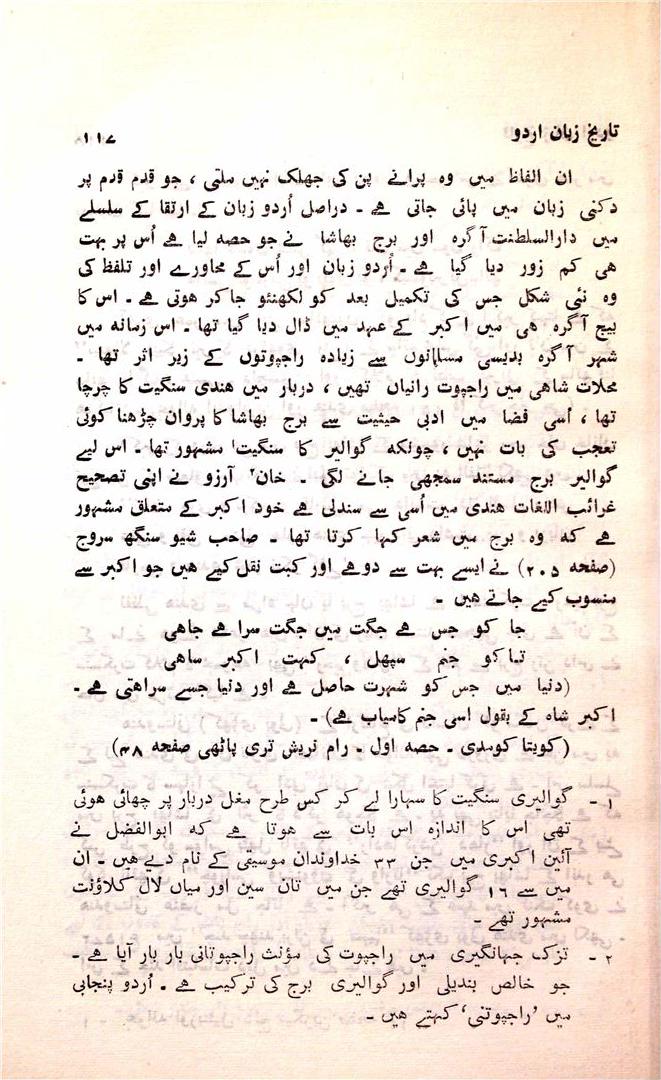 تاریخ زبان اردو ۱۱۷
ان الفاظ میں وہ پرانے پن کی جھلک نہیں ملتی ، جو قدم قدم پر
دکنی زبان میں پائی جاتی ہے ۔ دراصل اُردو زبان کے ارتقا کے سلسلے
میں دارالسلطنت آگرہ اور برج بھاشا نے جو حصہ لیا ہے اُس پر بہت
ہی کم زور دیا گیا ہے ۔ اُردو زبان اور اُس کے محاورے اور تلفظ کی
وہ نئی شکل جس کی تکمیل بعد کو لکھنئو جا کر ہوتی ہے ۔ اس کا
بیج آگرہ ہی میں اکبر کے عہد میں ڈال دیا گیا تھا ۔ اس زمانہ میں
شہر آگرہ بدیسی مسلمانوں سے زیادہ راجپوتوں کے زیر اثر تھا ۔
محلات شاہی میں راجپوت رانیاں تھیں ، دربار میں ہندی سنگیت کا چرچا
تھا ، اُسی فضا میں ادبی حیثیت سے برج بھاشا کا پروان چڑھنا کوئی
تعجب کی بات نہیں ، چونکہ گوالیر کا سنگیت۱ مشہور تھا ۔ اس لیے
گوالیر برج مستند سمجھی جانے لگی ۔ خان۲ آرزو نے اپنی تصحیح
غرائب اللغات ہندی میں اُسی سے سندلی ہے خود اکبر کے متعلق مشہور
ہے کہ وہ برج میں شعر کہا کرتا تھا ۔ صاحب شیو سنگھ سروج
(صفحہ ۲۰۵) نے ایسے بہت سے دوہے اور کبت نقل کیے ہیں جو اکبر سے
منسوب کیے جاتے ہیں ۔
جا کو جس ہے جگت میں جگت سرا ہے جاہی
تما کو جنم سپھل ، کہت اکبر ساہی
(دنیا میں جس کو شہرت حاصل ہے اور دنیا جسے سراہتی ہے ۔
اکبر شاہ کے بقول اسی جنم کامیاب ہے) ۔
(کویتا کومدی ۔ حصہ اول ۔ رام نریش تری پاٹھی صفحہ ۴۸)
۱ ۔ گوالیری سنگیت کا سہارا لے کر کس طرح مغل دربار پر چھائی ہوئی
تھی اس کا اندازہ اس بات سے ہوتا ہے کہ ابوالفضل نے
آئین اکبری میں جن ۳۳ خداوندان موسیقی کے نام دیے ہیں ۔ ان
میں سے ۱۶ گوالیری تھے جن میں تان سین اور میاں لال کلاؤنت
مشہور تھے ۔
۲ ۔ تزک جہانگیری میں راجپوت کی مؤنث راجپوتانی بار بار آیا ہے ۔
جو خالص بندیلی اور گوالیری برج کی ترکیب ہے ۔ اُردو پنجابی
میں ’راجپوتنی‘ کہتے ہیں ۔